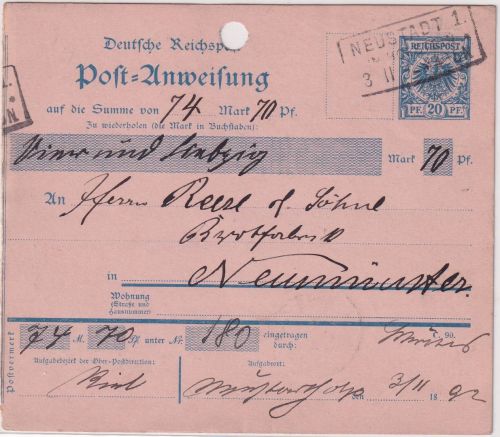 Deutsche Reichspo
Post=Anweisung
NEUSTADT 1.
REICHSPOST
3 11
PF. 20 PF.
auf die Summe von 74 Mark 70 Pf.
Zu wiederholen (die Mark in Buchstaben):
Vier und siebzig Mark 70 Pf.
An Herrn Reese & Söhne
in Neumünster.
Wohnung
(Straße und
Hausnummer)
C. 90.
Postvermerk
74 M. 70 Pf. unter Nr. 180 eingetragen
durch:
Aufgabebezirk der Ober-Postdirection:
Aufgabeort:
Kiel
den 3/11 18 92